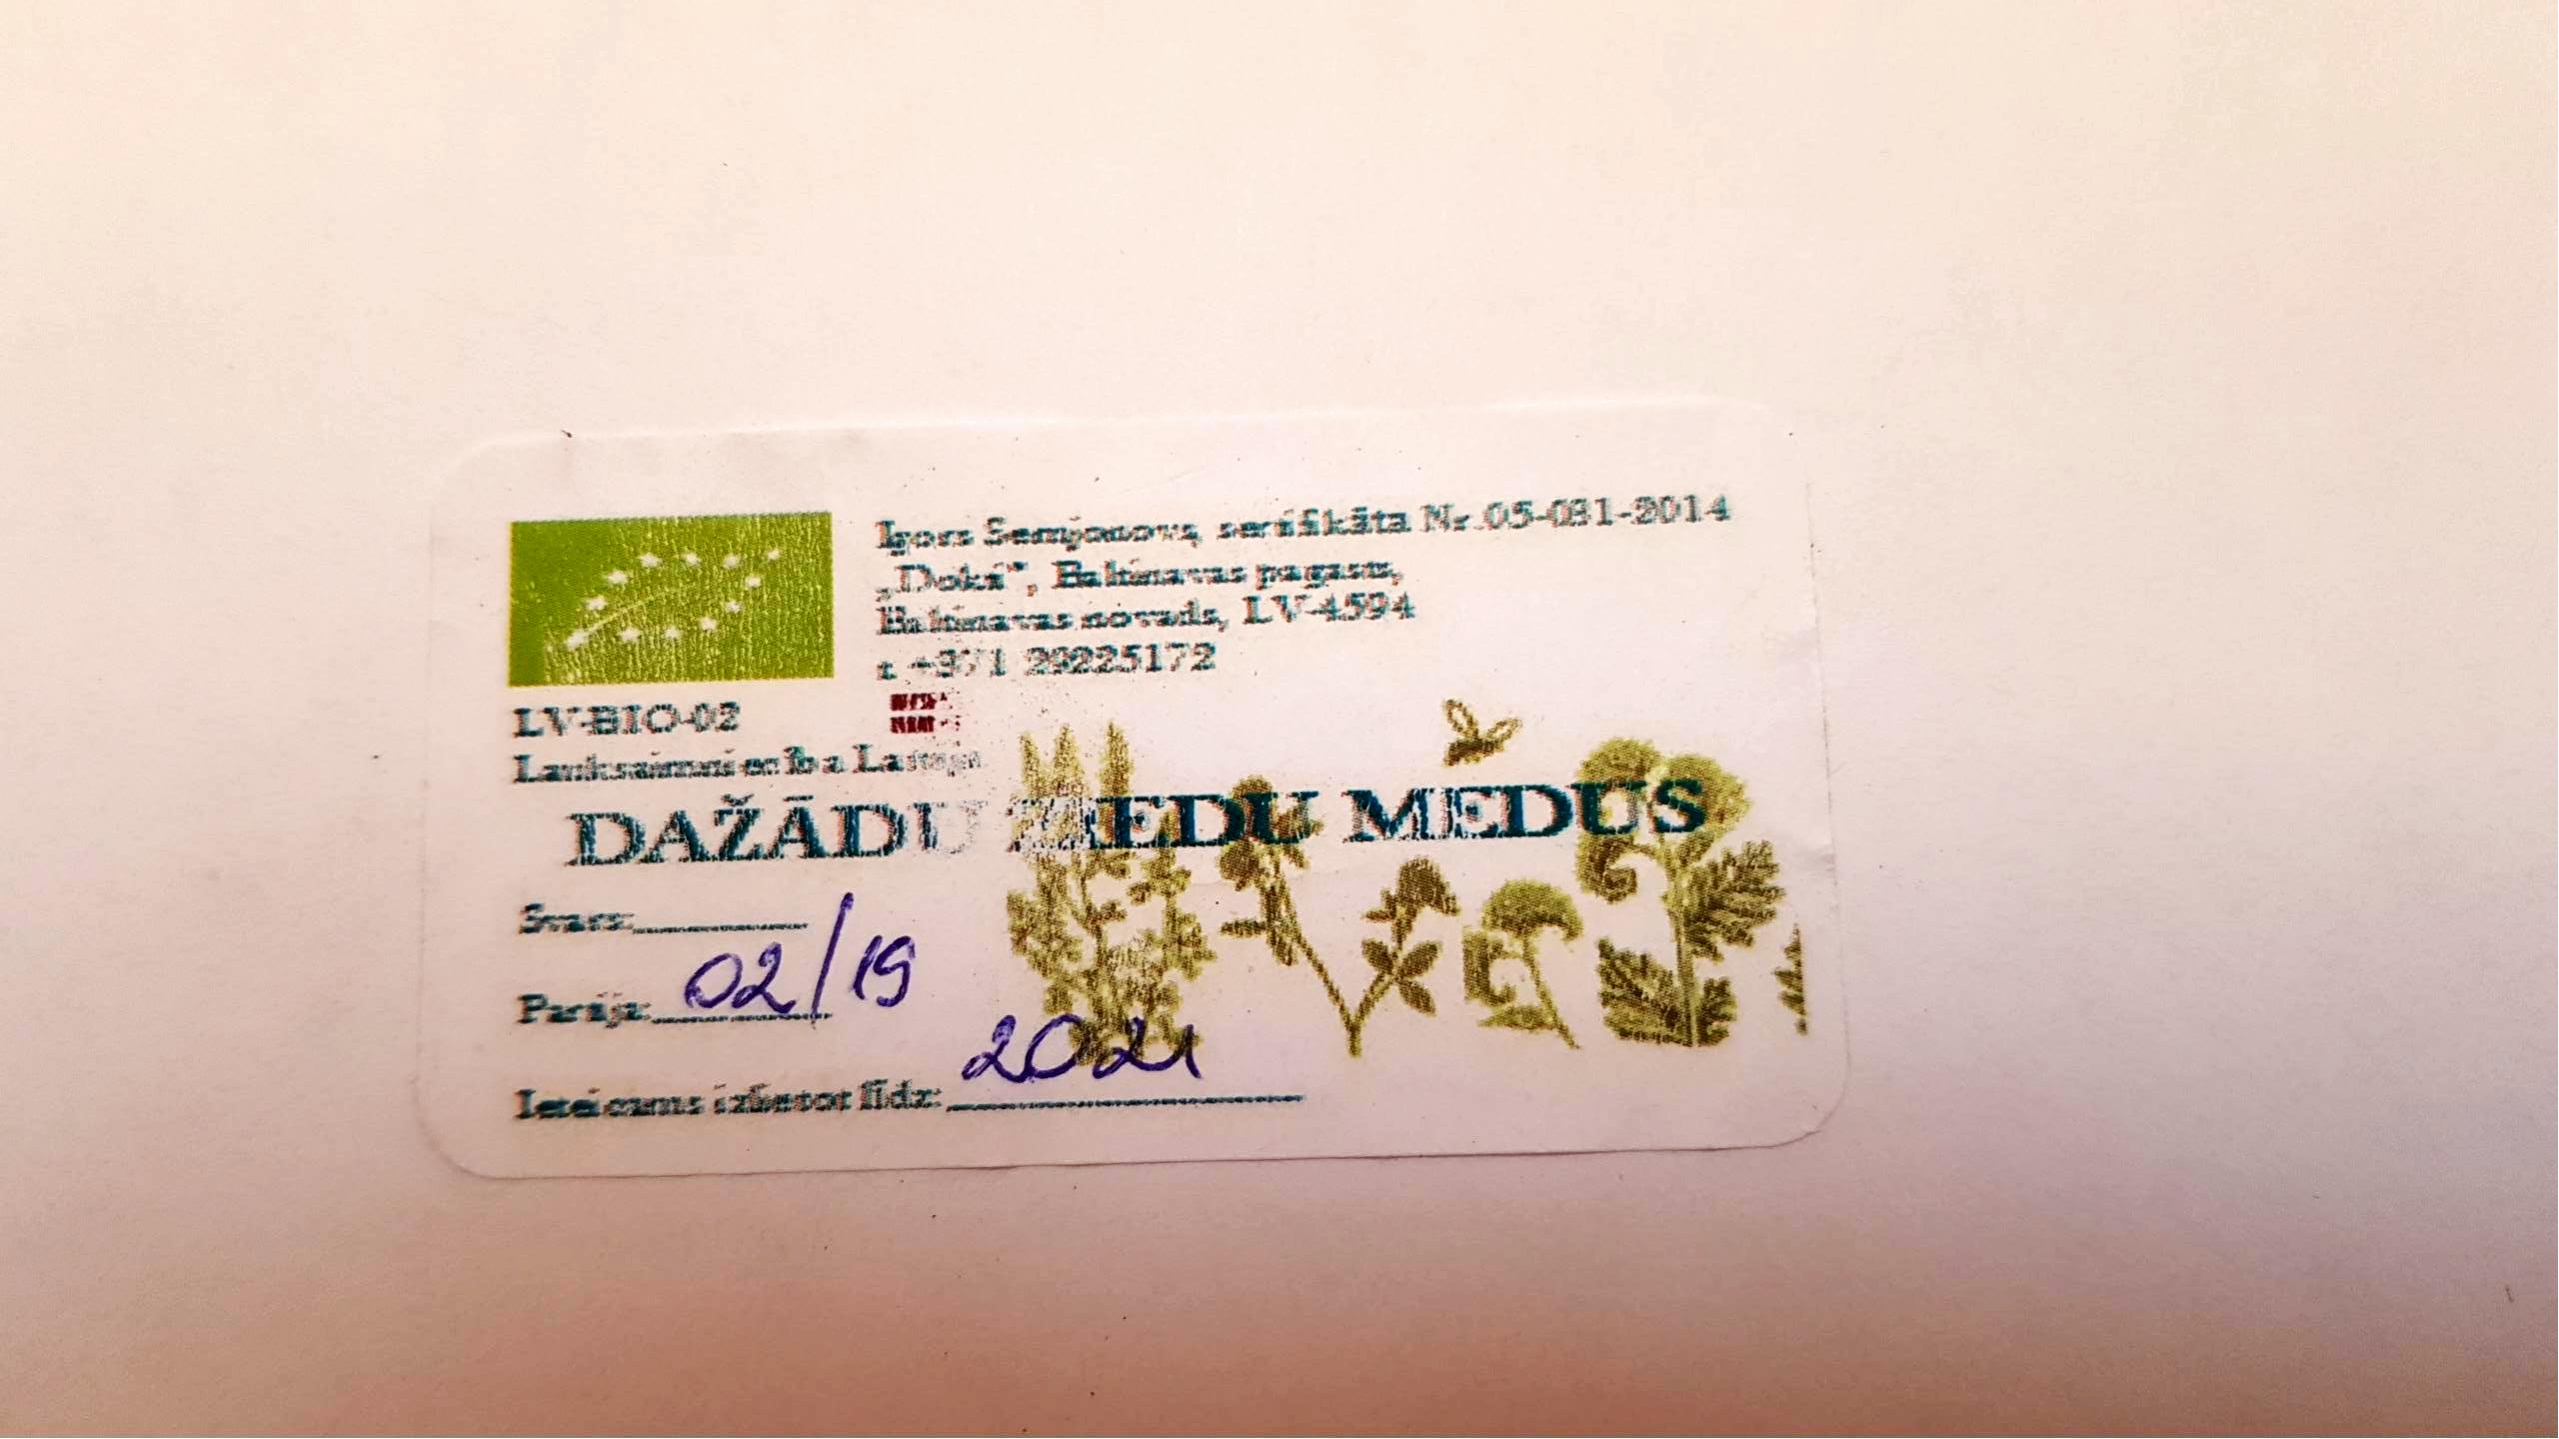 Igors Semjonovs, sertifikāta Nr.05-031-2014
„Doka", Baltinavas pagasts,
Baltinavas novads, LV-4594
t. +371 29225172
LV-BIO-02
Lauksaimniecība Latvija
DAŽĀDU ZIEDU MEDUS
Svars:
Partija: 02/19
Ieteicams izlietot līdz: 2021